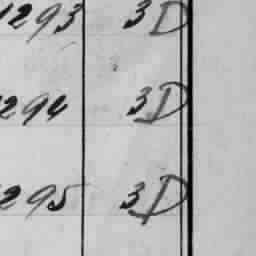 1293 3D
1294 3D
1295 3D